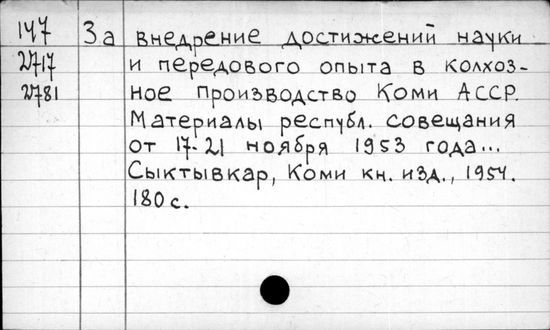 147 За внедрение достижений науки
2717 и передового опыта в колхоз-
2781 ное производство Коми АССР.
Материалы республ. совещания
от 17-21 ноября 1953 года...
Сыктывкар, Коми кн. изд., 1954.
180 с.